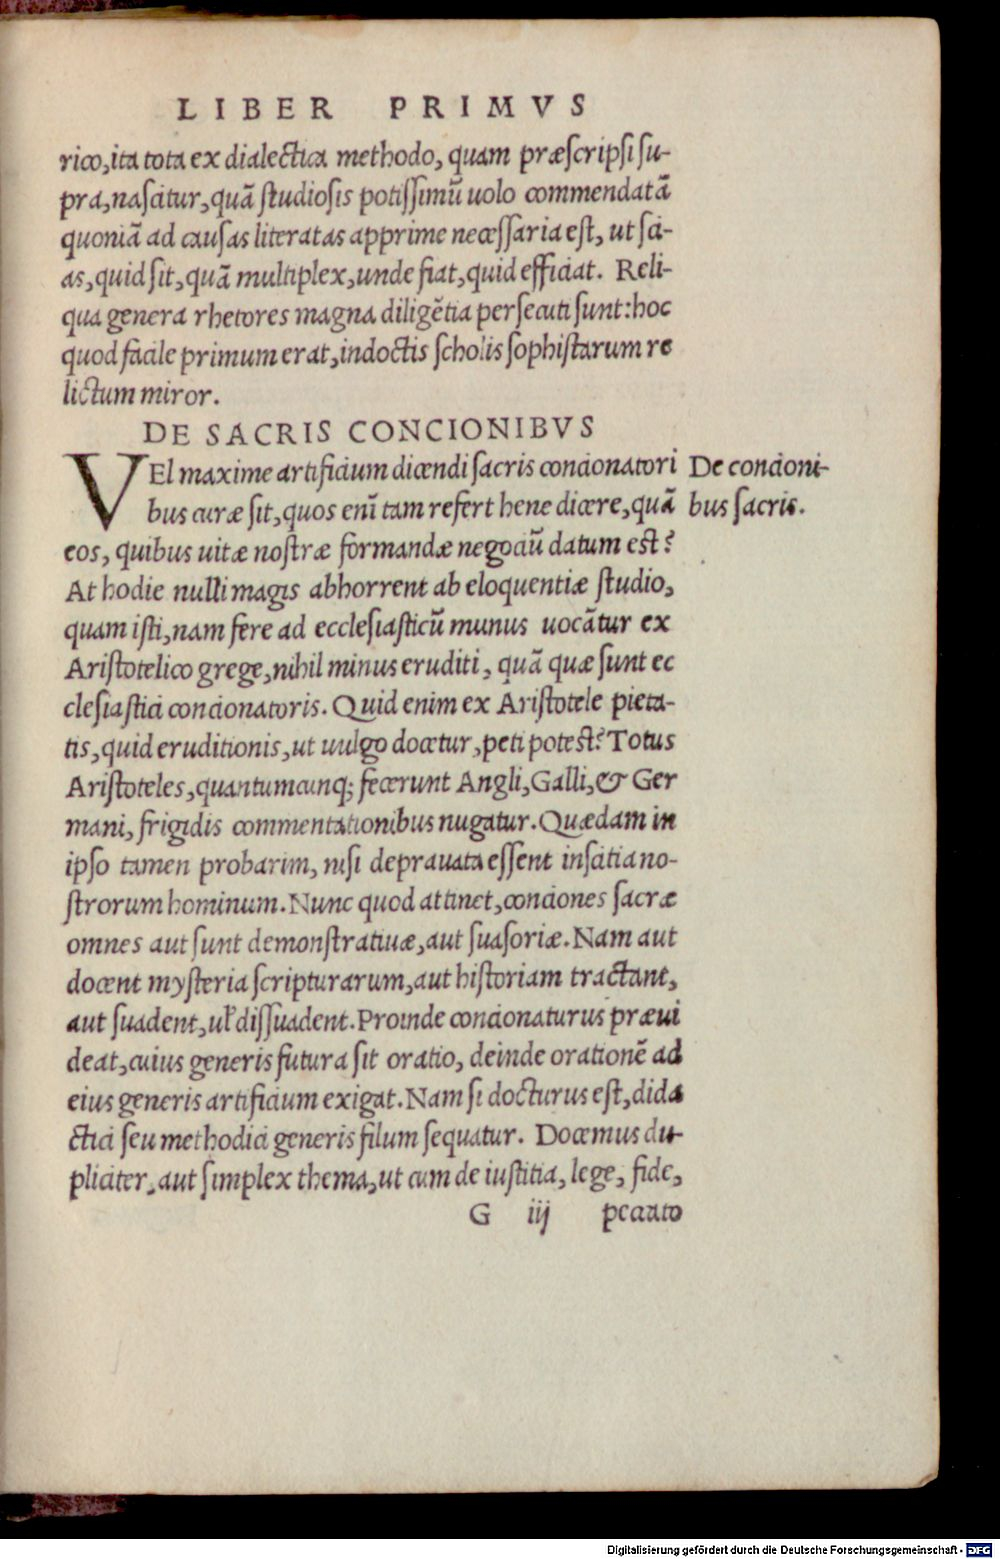 LIBER PRIMVS
rico,ita tota ex dialectica methodo, quam præscripsi su-
pra,nascitur,quā studiosis potissimū uolo commendatā
quoniā ad causas literatas apprime necessaria est, ut sci-
as,quid sit,quā multiplex,unde fiat,quid efficiat. Reli-
qua genera rhetores magna diligētia persecuti sunt:hoc
quod facile primum erat,indoctis scholis sophistarum re
lictum miror.
DE SACRIS CONCIONIBVS
VEl maxime artificium dicendi sacris concionatori
De concioni-
bus curæ sit,quos enī tam refert hene dicere,quā
bus sacris.
eos, quibus uitæ nostræ formandæ negociū datum est?
At hodie nulli magis abhorrent ab eloquentiæ studio,
quam isti,nam fere ad ecclesiasticū munus uocātur ex
Aristotelico grege,nihil minus eruditi, quā quæ sunt ec
clesiastici concionatoris. Quid enim ex Aristotele pieta-
tis,quid eruditionis,ut uulgo docetur,peti potest? Totus
Aristoteles,quantumcunq; fecerunt Angli,Galli,& Ger
mani, frigidis commentationibus nugatur. Quædam in
ipso tamen probarim, nisi deprauata essent inscitia no-
strorum hominum. Nunc quod attinet,conciones sacræ
omnes aut sunt demonstratiuæ,aut suasoriæ. Nam aut
docent mysteria scripturarum,aut historiam tractant,
aut suadent,uľ dissuadent. Proinde concionaturus præui
deat,cuius generis futura sit oratio, deinde orationē ad
eius generis artificium exigat. Nam si docturus est,dida
ctici seu methodici generis filum sequatur. Docemus du-
pliciter,aut simplex thema,ut cum de iustitia, lege, fide,
G iij peccato